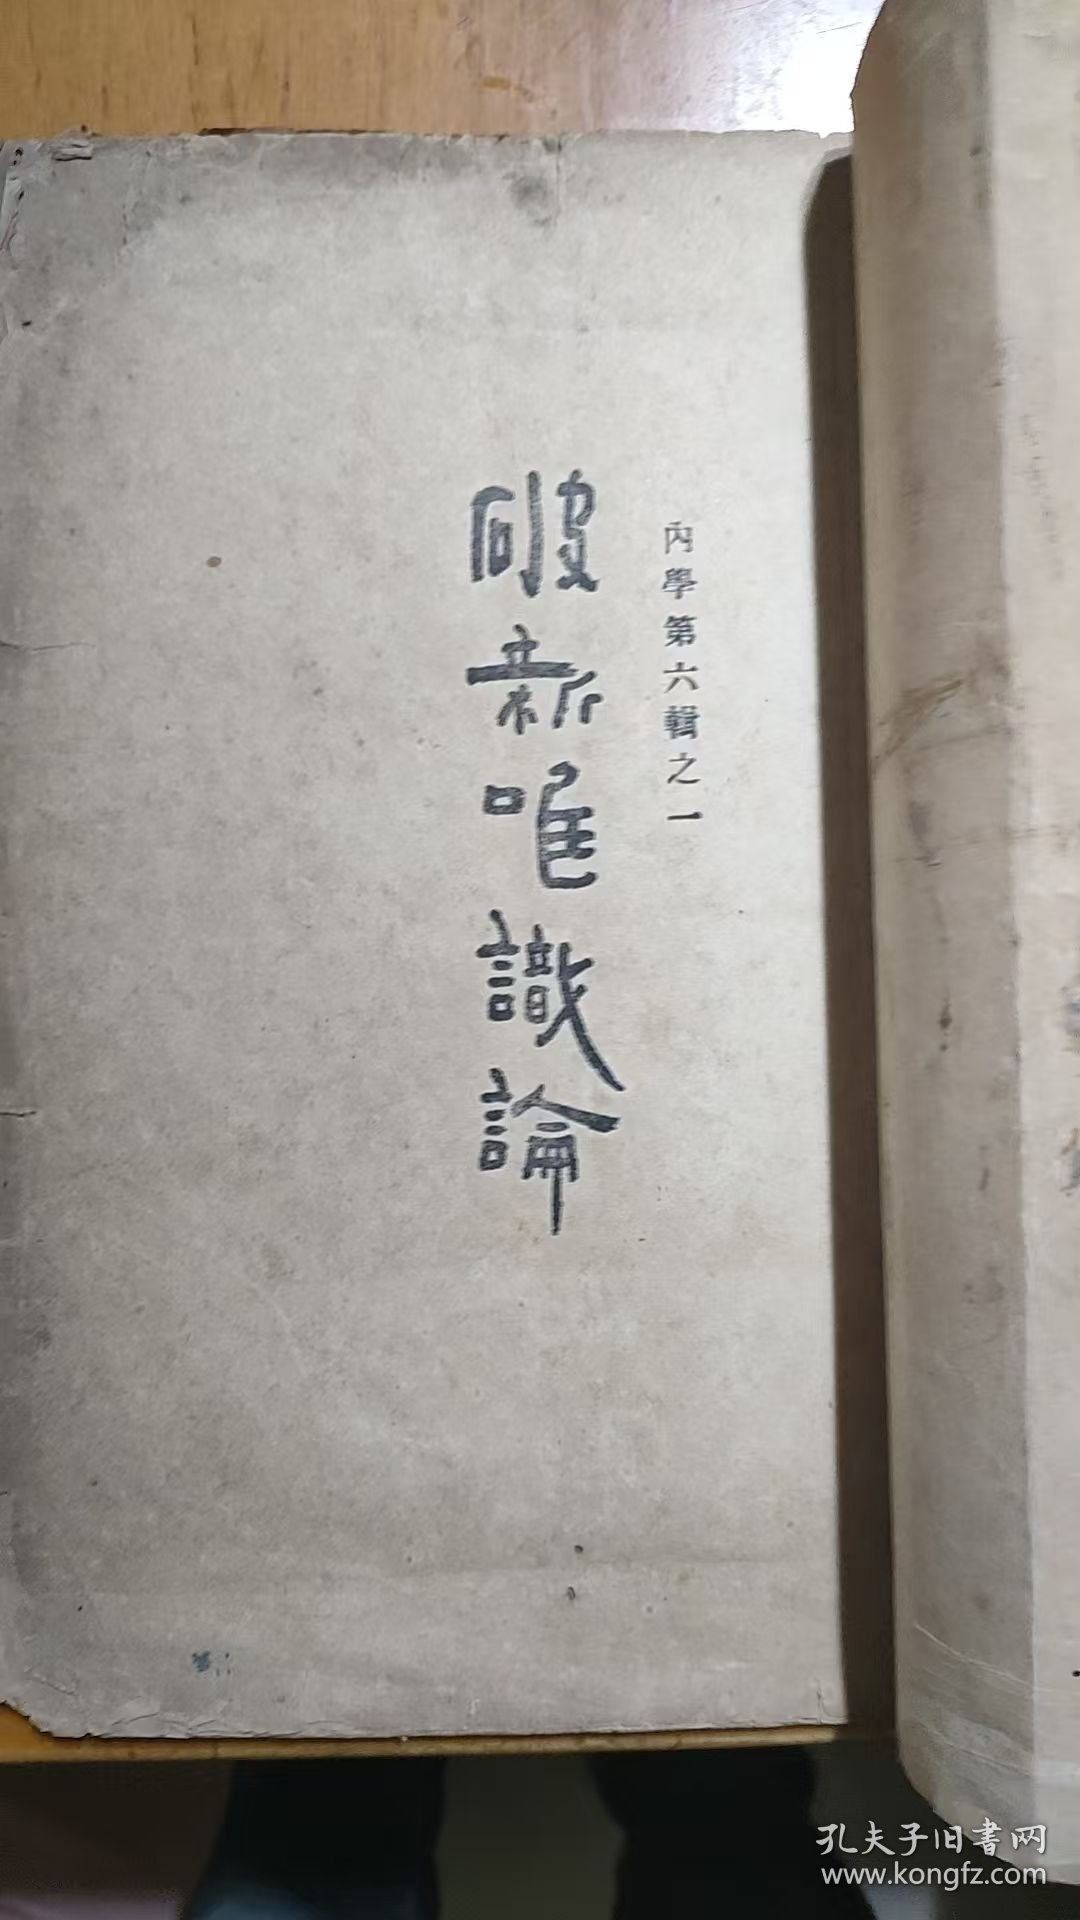 內學第六輯之一
破新唯識論
孔夫子旧書网
www.kongfz.com